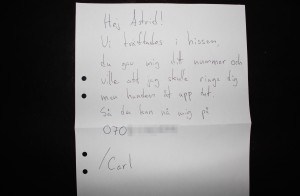 Hej Astrid!
Vi träffades i hissen,
du gav mig ditt nummer och
ville att jag skulle ringa dig
men hunden åt upp det.
Så du kan nå mig på
070
/Carl